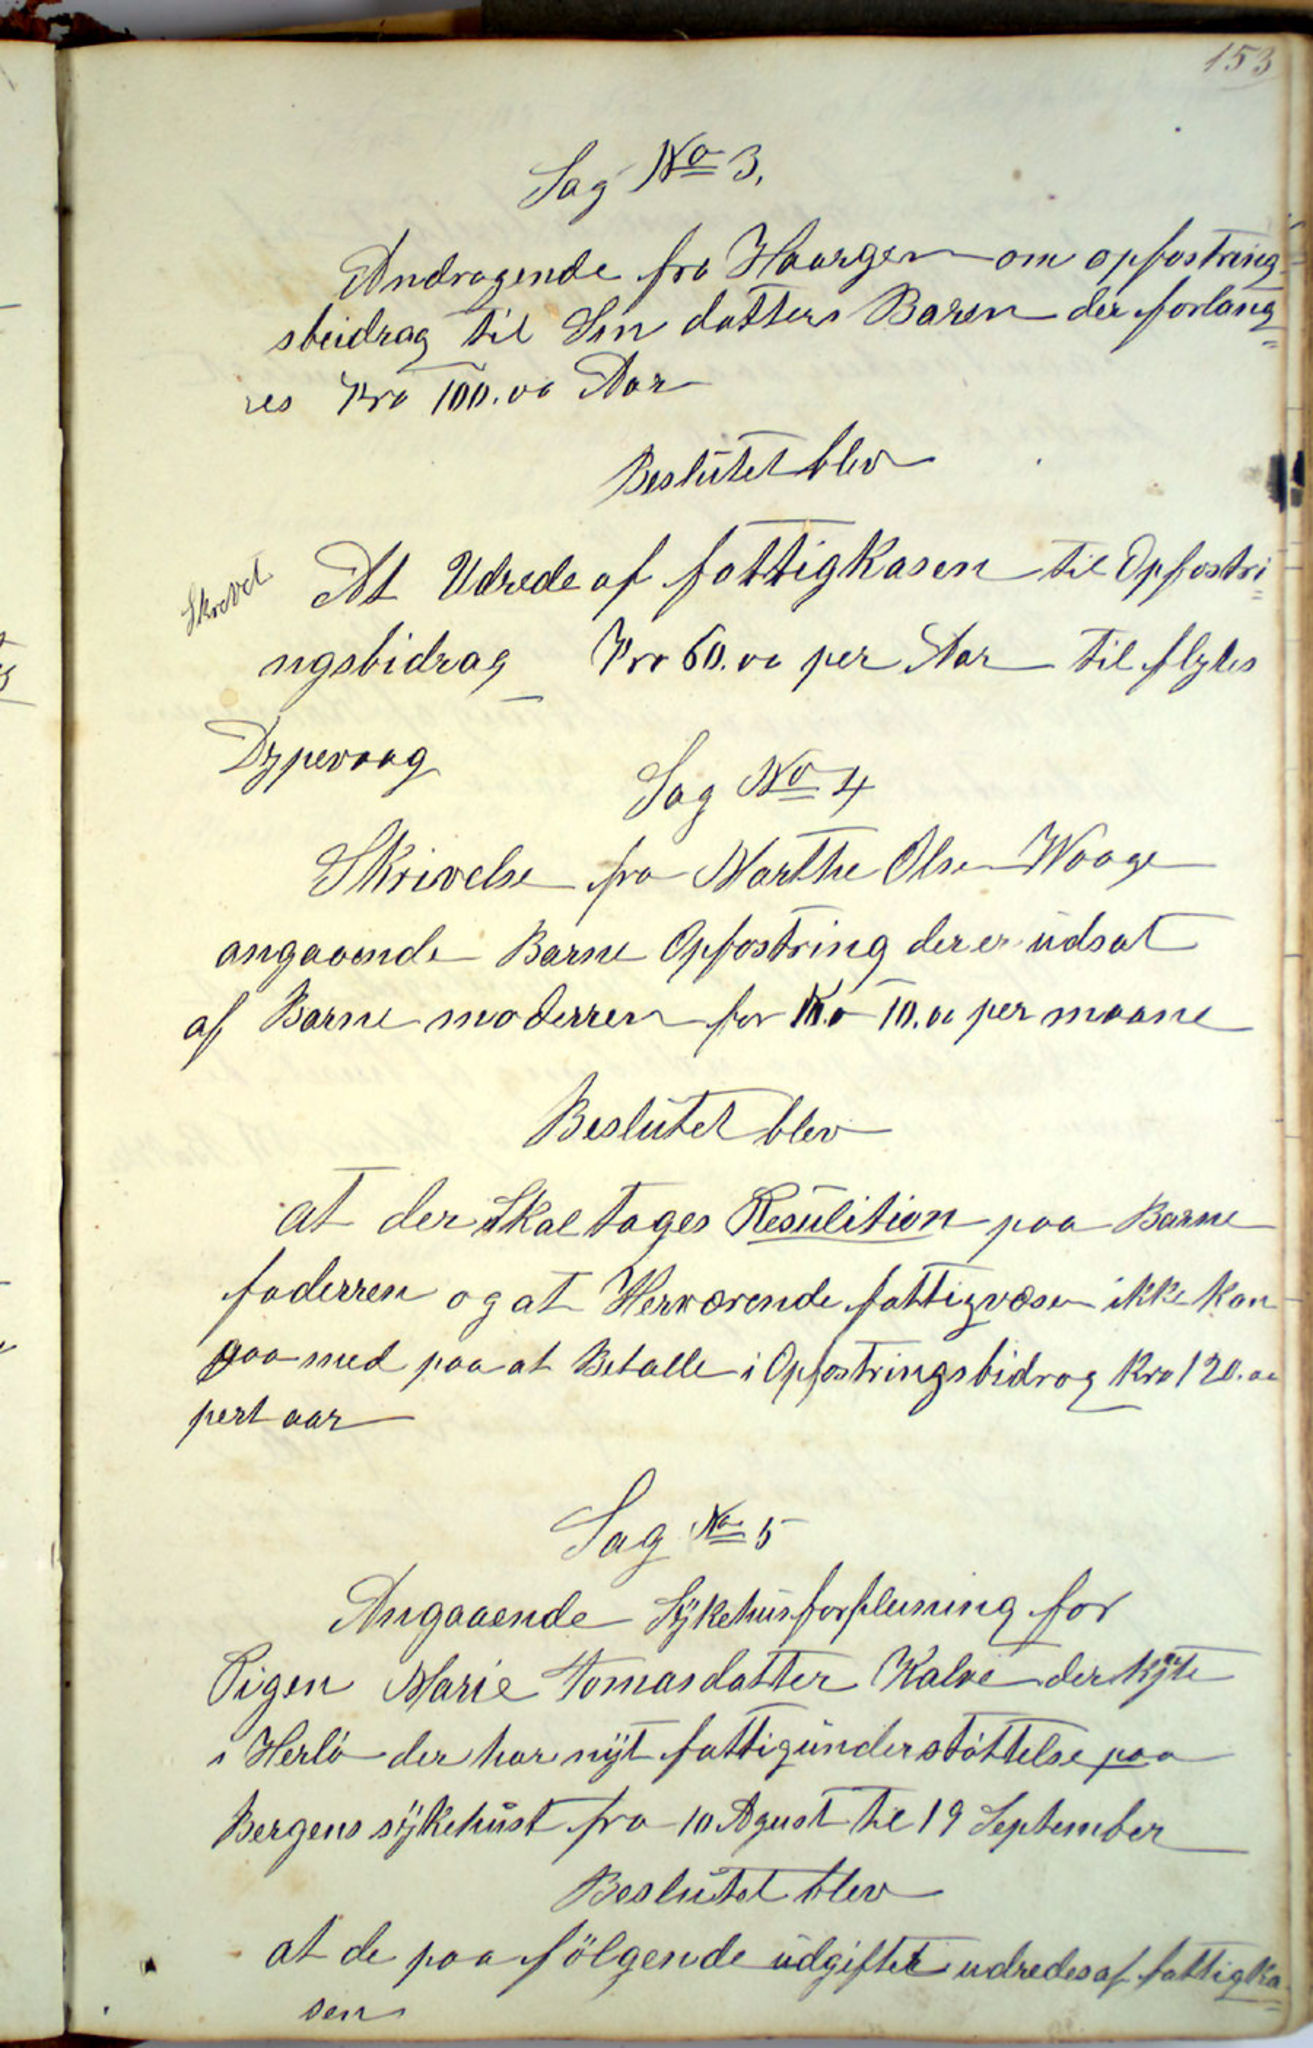 153
Sag No 3,
Andragende fra Haargen om opfostring
sbeidrag til Sin datters Baren der forlang
res Kro 100.00 Aar
Beslutet blev
Skrevet
At Udrede af fattigkasen til Opfostri
ngsbidrag Kro 60.00 per Aar til flytes
Dypevaag
Sag No 4
Skrivelse fra Marthe Olsen Waage
angaaende Barne Opfostring der er udsat
af Barne moderren for Kro 10.00 per maane
Beslutet blev
at der Skal tages Resulition paa Barne
faderren og at Herværende fattigvæsen ikke kan
gaa med paa at Betalle i Opfostringsbidrag Kro 120.00
pert aar
Sag No 5
Angaaende Sÿkehusforpleining for
Pigen Marie Tomasdatter Kalve der
i Herlö der har nÿt fattigunderstöttelse paa
Bergens sÿkehust fra 10 Agust til 19 September
Beslutet blev
at de paa fölgende udgifter udredes af fattigka
sen